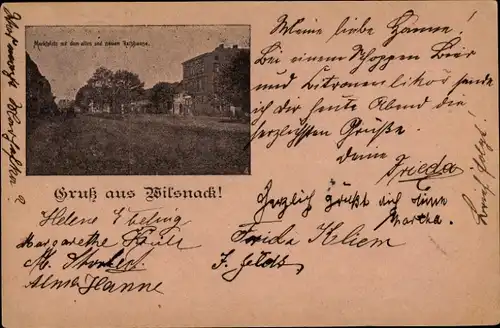 Marktplatz mit dem alten und neuen Rathhause.
Gruß aus Wilsnack!
Meine liebe Hanne!
Bei einem Schoppen Bier
und Citronenlikör sende
ich dir heute Abend die
herzlichsten Grüße.
deine
Frieda
Herzlich grüßt dich deine
Martha.
Brief folgt!
Helene Ebeling
Margarethe
M.
Alma Hanne
Frida Kliem